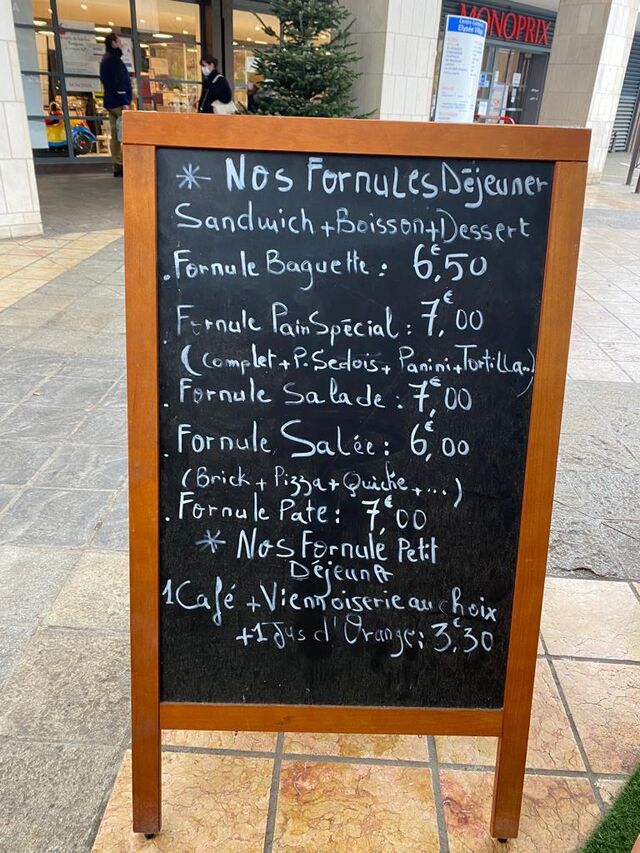 MONOPRIX
* Nos Formules Déjeuner
Sandwich + Boisson + Dessert
. Formule Baguette : 6€,50
. Formule Pain Spécial : 7€,00
(Complet + P. Sedois + Panini + Tortilla..)
. Formule Salade : 7€,00
. Formule Salée : 6€,00
(Brick + Pizza + Quiche + ...)
. Formule Pate : 7€,00
* Nos Formule Petit
Déjeuner
1 Café + Viennoiserie au choix
+ 1 Jus d'Orange : 3€,30